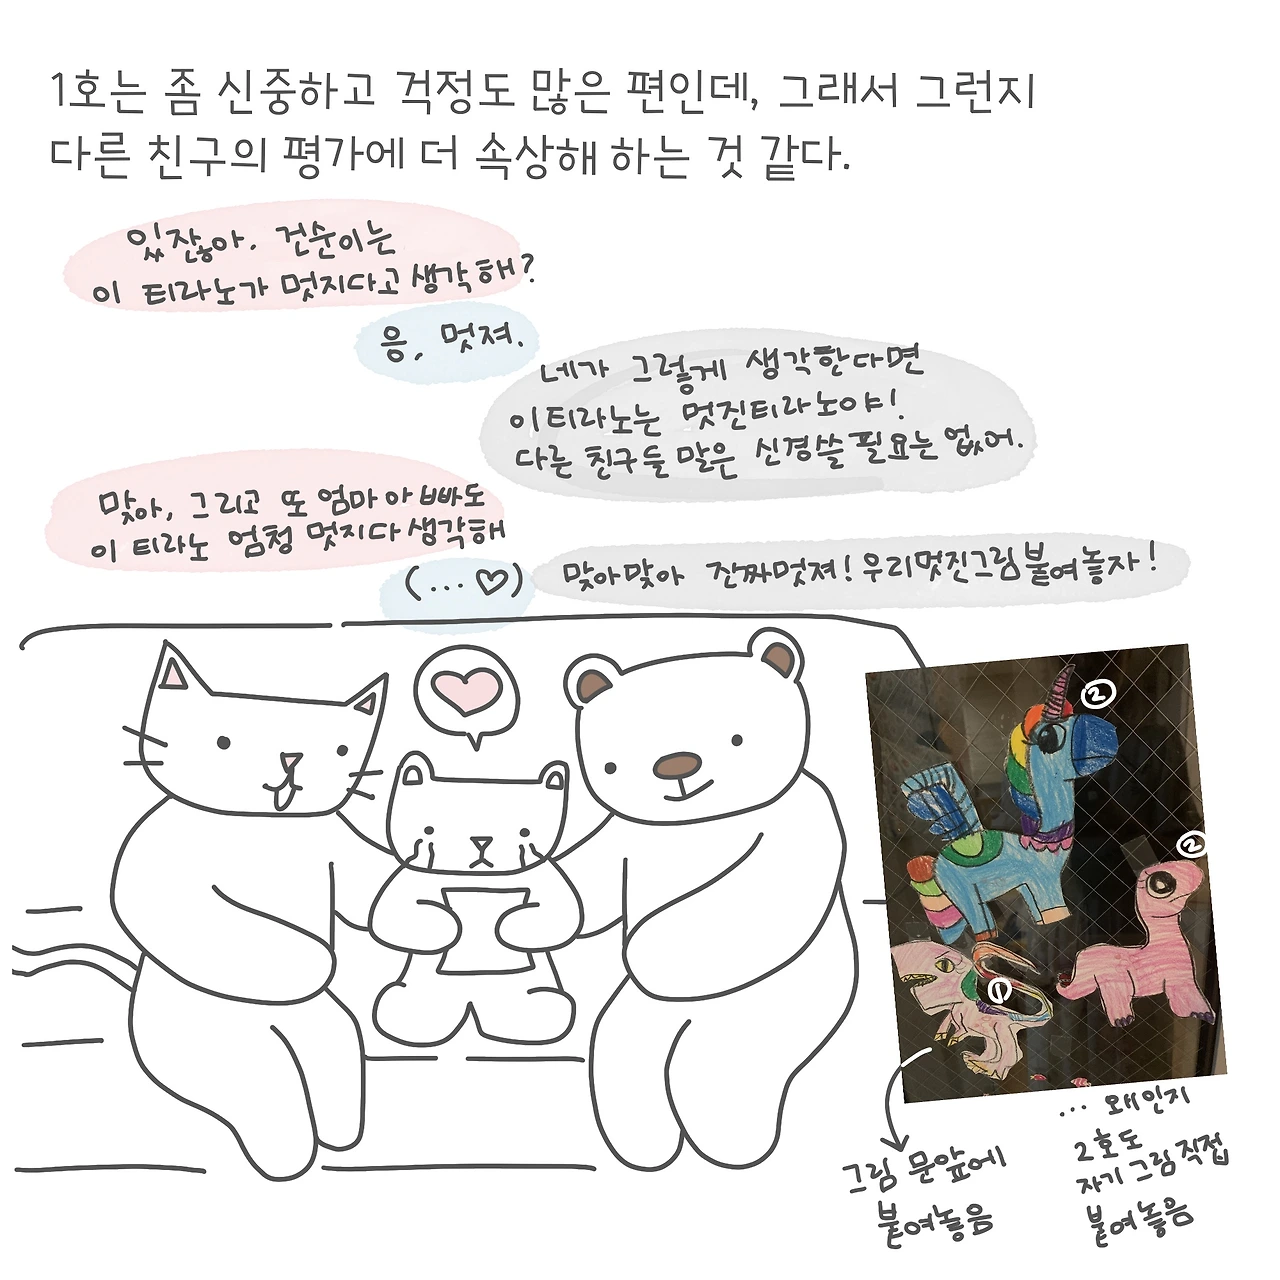 1호는 좀 신중하고 걱정도 많은 편인데, 그래서 그런지
다른 친구의 평가에 더 속상해 하는 것 같다.
있잖아. 건순이는
이 티라노가 멋지다고 생각해?
응, 멋져.
네가 그렇게 생각한다면
이 티라노는 멋진 티라노야!
다른 친구들 말은 신경쓸 필요는 없어.
맞아, 그리고 또 엄마 아빠도
이 티라노 엄청 멋지다 생각해
(...♡)
맞아맞아 진짜멋져! 우리멋진그림붙여놓자!
②
②
①
... 왜인지
2호도
자기 그림 직접
붙여놓음
그림 문앞에
붙여놓음